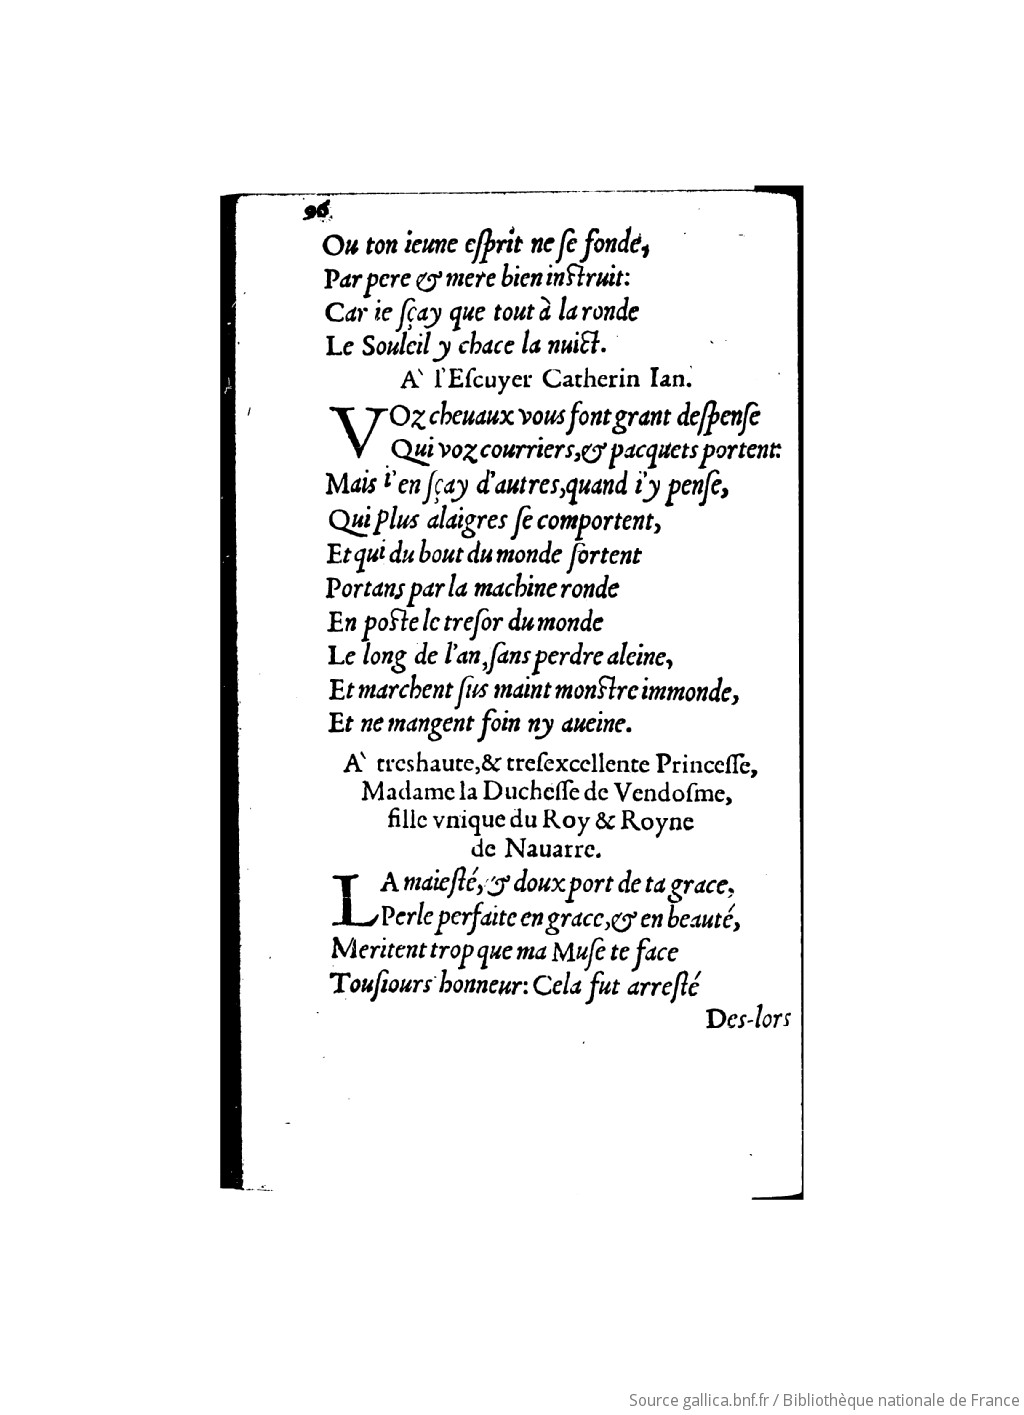 96
Ou ton ieune eſprit ne ſe fonde,
Par pere & mere bien inſtruit:
Car ie ſçay que tout à la ronde
Le Souleil y chace la nuict.
A` l'Eſcuyer Catherin Ian.
VOz cheuaux vous font grant deſpenſe
Qui voz courriers,& pacquets portent:
Mais i'en ſçay d'autres,quand i'y penſe,
Qui plus alaigres ſe comportent,
Et qui du bout du monde ſortent
Portans par la machine ronde
En poſte le treſor du monde
Le long de l'an,ſans perdre aleine,
Et marchent ſus maint monſtre immonde,
Et ne mangent foin ny aueine.
A` treshaute,& treſexcellente Princeſſe,
Madame la Ducheſſe de Vendoſme,
fille vnique du Roy & Royne
de Nauarre.
LA maieſté,& doux port de ta grace,
Perle perfaite en grace,& en beauté,
Meritent trop que ma Muſe te face
Touſiours honneur: Cela fut arreſté
Des-lors
Source gallica.bnf.fr / Bibliothèque nationale de France